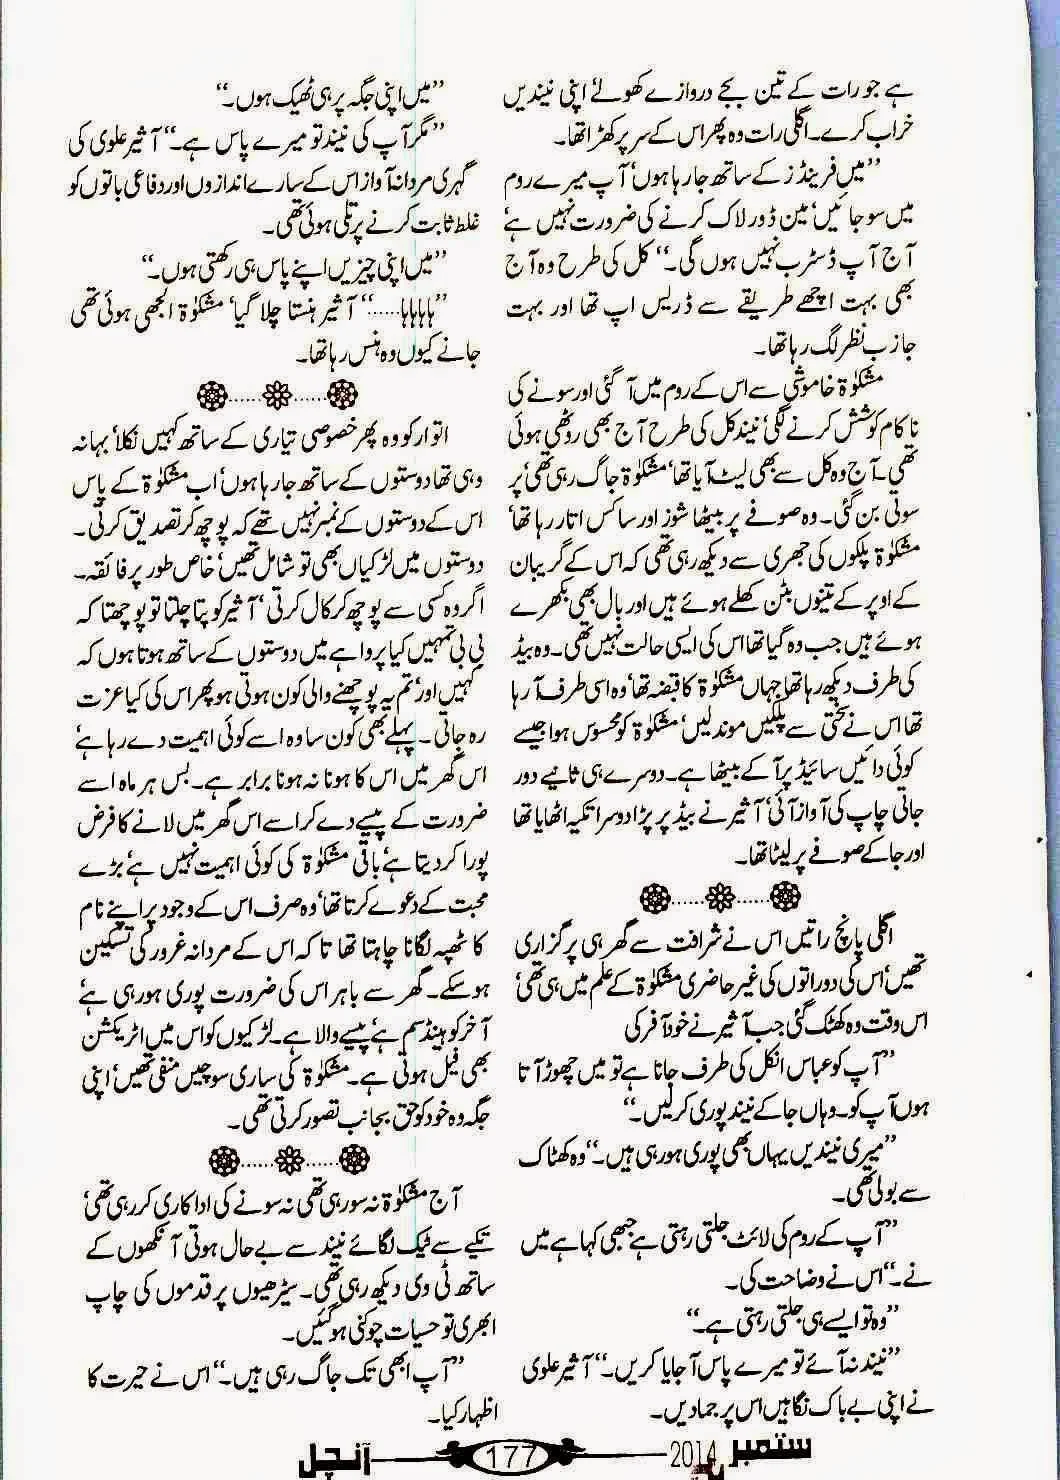 ہے جو رات کے تین بجے دروازے کھولے اپنی نیندیں
خراب کرے۔ اگلی رات وہ پھر اس کے سر پر کھڑا تھا۔
”میں فرینڈز کے ساتھ جا رہا ہوں‘ آپ میرے روم
میں سو جائیں‘ مین ڈور لاک کرنے کی ضرورت نہیں ہے‘
آج آپ ڈسٹرب نہیں ہوں گی۔“ کل کی طرح وہ آج
بھی بہت اچھے طریقے سے ڈریس اپ تھا اور بہت
جاذب نظر لگ رہا تھا۔
مشکوٰۃ خاموشی سے اس کے روم میں آ گئی اور سونے کی
ناکام کوشش کرنے لگی‘ نیند کل کی طرح آج بھی روٹھی ہوئی
تھی۔ آج وہ کل سے بھی لیٹ آیا تھا‘ مشکوٰۃ جاگ رہی تھی‘ پر
سوتی بن گئی۔ وہ صوفے پر بیٹھا شوز اور ساکس اتار رہا تھا‘
مشکوٰۃ پلکوں کی جھری سے دیکھ رہی تھی کہ اس کے گریبان
کے اوپر کے تینوں بٹن کھلے ہوئے ہیں اور بال بھی بکھرے
ہوئے ہیں جب وہ گیا تھا اس کی ایسی حالت نہیں تھی۔ وہ بیڈ
کی طرف دیکھ رہا تھا جہاں مشکوٰۃ کا قبضہ تھا‘ وہ اسی طرف آ رہا
تھا اس نے سختی سے پلکیں موند لیں‘ مشکوٰۃ کو محسوس ہوا جیسے
کوئی دائیں سائیڈ پر آ کے بیٹھا ہے۔ دوسرے ہی ثانیے دور
جاتی چاپ کی آواز آئی‘ آشیر نے بیڈ پر پڑا دوسرا تکیہ اٹھایا تھا
اور جا کے صوفے پر لیٹا تھا۔
اگلی پانچ راتیں اس نے شرافت سے گھر ہی پر گزاری
تھیں‘ اس کی دو راتوں کی غیر حاضری مشکوٰۃ کے علم میں ہی تھی‘
اس وقت وہ کھٹک گئی جب آشیر نے خود آفر کی
”آپ کو عباس انکل کی طرف جانا ہے تو میں چھوڑ آتا
ہوں آپ کو۔ وہاں جا کے نیند پوری کر لیں۔“
”میری نیندیں یہاں بھی پوری ہو رہی ہیں۔“ وہ کھٹاک
سے بولی تھی۔
”آپ کے روم کی لائٹ جلتی رہتی ہے جبھی کہا ہے میں
نے۔“ اس نے وضاحت کی۔
”وہ تو ایسے ہی جلتی رہتی ہے۔“
”نیند نہ آئے تو میرے پاس آ جایا کریں۔“ آشیر علوی
نے اپنی بے باک نگاہیں اس پر جما دیں۔
”میں اپنی جگہ پر ہی ٹھیک ہوں۔“
”مگر آپ کی نیند تو میرے پاس ہے۔“ آشیر علوی کی
گہری مردانہ آواز اس کے سارے اندازوں اور دفاعی باتوں کو
غلط ثابت کرنے پر تلی ہوئی تھی۔
”میں اپنی چیزیں اپنے پاس ہی رکھتی ہوں۔“
”ہاہاہاہا......“ آشیر ہنستا چلا گیا‘ مشکوٰۃ الجھی ہوئی تھی
جانے کیوں وہ ہنس رہا تھا۔
اتوار کو وہ پھر خصوصی تیاری کے ساتھ کہیں نکلا‘ بہانہ
وہی تھا دوستوں کے ساتھ جا رہا ہوں‘ اب مشکوٰۃ کے پاس
اس کے دوستوں کے نمبر نہیں تھے کہ پوچھ کر تصدیق کرتی۔
دوستوں میں لڑکیاں بھی تو شامل تھیں‘ خاص طور پر فائقہ۔
اگر وہ کسی سے پوچھ کر کال کرتی‘ آشیر کو پتا چلتا تو پوچھتا کہ
بی بی تمہیں کیا پروا ہے میں دوستوں کے ساتھ ہوتا ہوں کہ
کہیں اور‘ تم یہ پوچھنے والی کون ہوتی ہو پھر اس کی کیا عزت
رہ جاتی۔ پہلے بھی کون سا وہ اسے کوئی اہمیت دے رہا ہے‘
اس گھر میں اس کا ہونا نہ ہونا برابر ہے۔ بس ہر ماہ اسے
ضرورت کے پیسے دے کر اسے اس گھر میں لانے کا فرض
پورا کر دیتا ہے‘ باقی مشکوٰۃ کی کوئی اہمیت نہیں ہے‘ بڑے
محبت کے دعوے کرتا تھا‘ وہ صرف اس کے وجود پر اپنے نام
کا ٹھپہ لگانا چاہتا تھا تاکہ اس کے مردانہ غرور کی تسکین
ہو سکے۔ گھر سے باہر اس کی ضرورت پوری ہو رہی ہے‘
آخر کو ہینڈسم ہے‘ پیسے والا ہے۔ لڑکیوں کو اس میں اٹریکشن
بھی فیل ہوتی ہے۔ مشکوٰۃ کی ساری سوچیں منفی تھیں‘ اپنی
جگہ وہ خود کو حق بجانب تصور کرتی تھی۔
آج مشکوٰۃ نہ سو رہی تھی نہ سونے کی اداکاری کر رہی تھی‘
تکیے سے ٹیک لگائے نیند سے بے حال ہوتی آنکھوں کے
ساتھ ٹی وی دیکھ رہی تھی۔ سیڑھیوں پر قدموں کی چاپ
ابھری تو حسیات چوکنی ہو گئیں۔
”آپ ابھی تک جاگ رہی ہیں۔“ اس نے حیرت کا
اظہار کیا۔
ستمبر 2014
177
آنچل